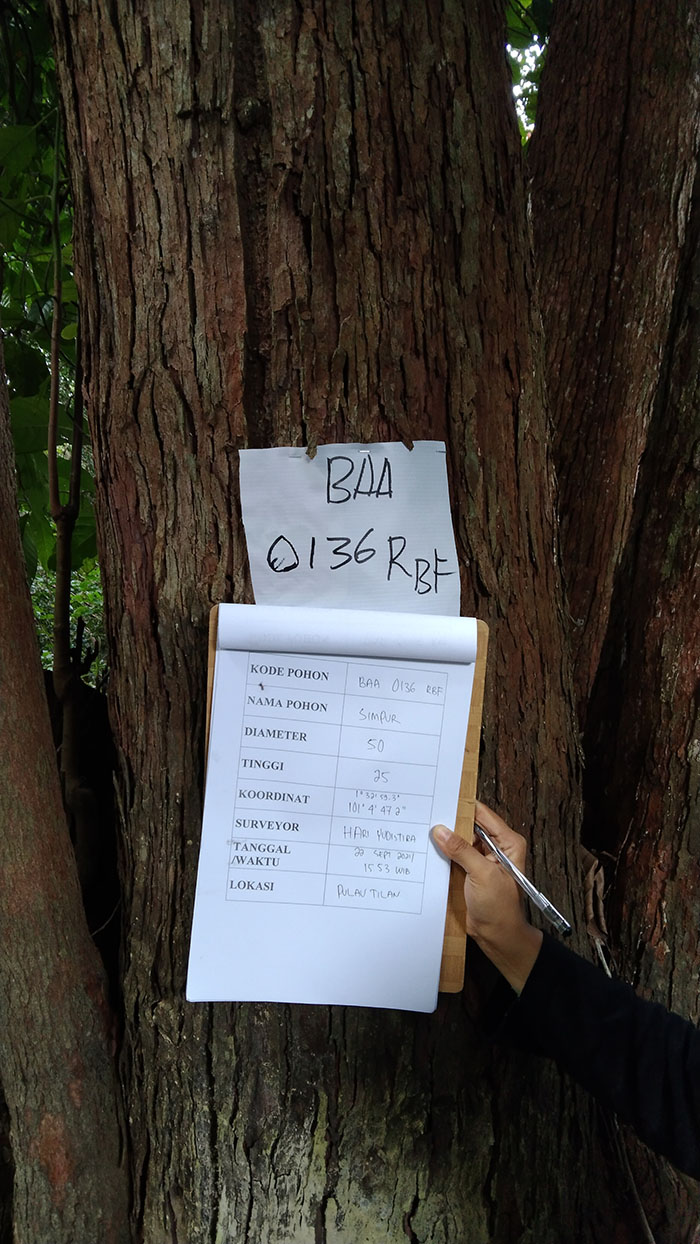 BAA
0136 RBF
KODE POHON BAA 0136 RBF
NAMA POHON SIMPUR
DIAMETER 50
TINGGI 25
KOORDINAT 1° 32' 59.3"
101° 4' 47.2"
SURVEYOR HARI YUDISTIRA
TANGGAL 22 SEPT 2021
/WAKTU 15 53 WIB
LOKASI PULAU TILAN